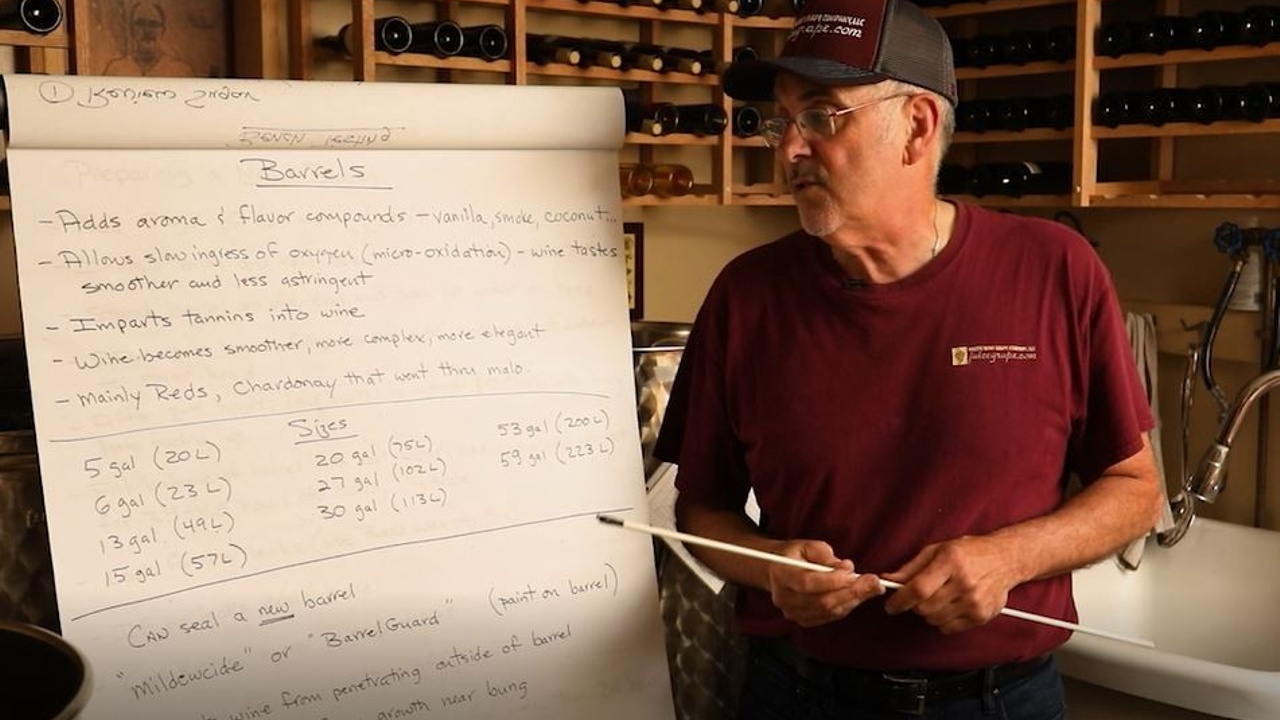 Barrels
- Adds aroma & flavor compounds - vanilla, smoke, coconut...
- Allows slow ingress of oxygen (micro-oxidation) - wine tastes
smoother and less astringent
- Imparts tannins into wine
- Wine becomes smoother, more complex, more elegant
- Mainly Reds, Chardonay that went thru malo.
Sizes
5 gal (20L)
6 gal (23L)
13 gal. (49L)
15 gal (57L)
20 gal (75L)
27 gal (102L)
30 gal (113L)
53 gal (200L)
59 gal (223L)
CAN seal a new barrel
"Mildewcide" or "BarrelGuard" (paint on barrel)
wine from penetrating outside of barrel
growth near bung
juicegrape.com